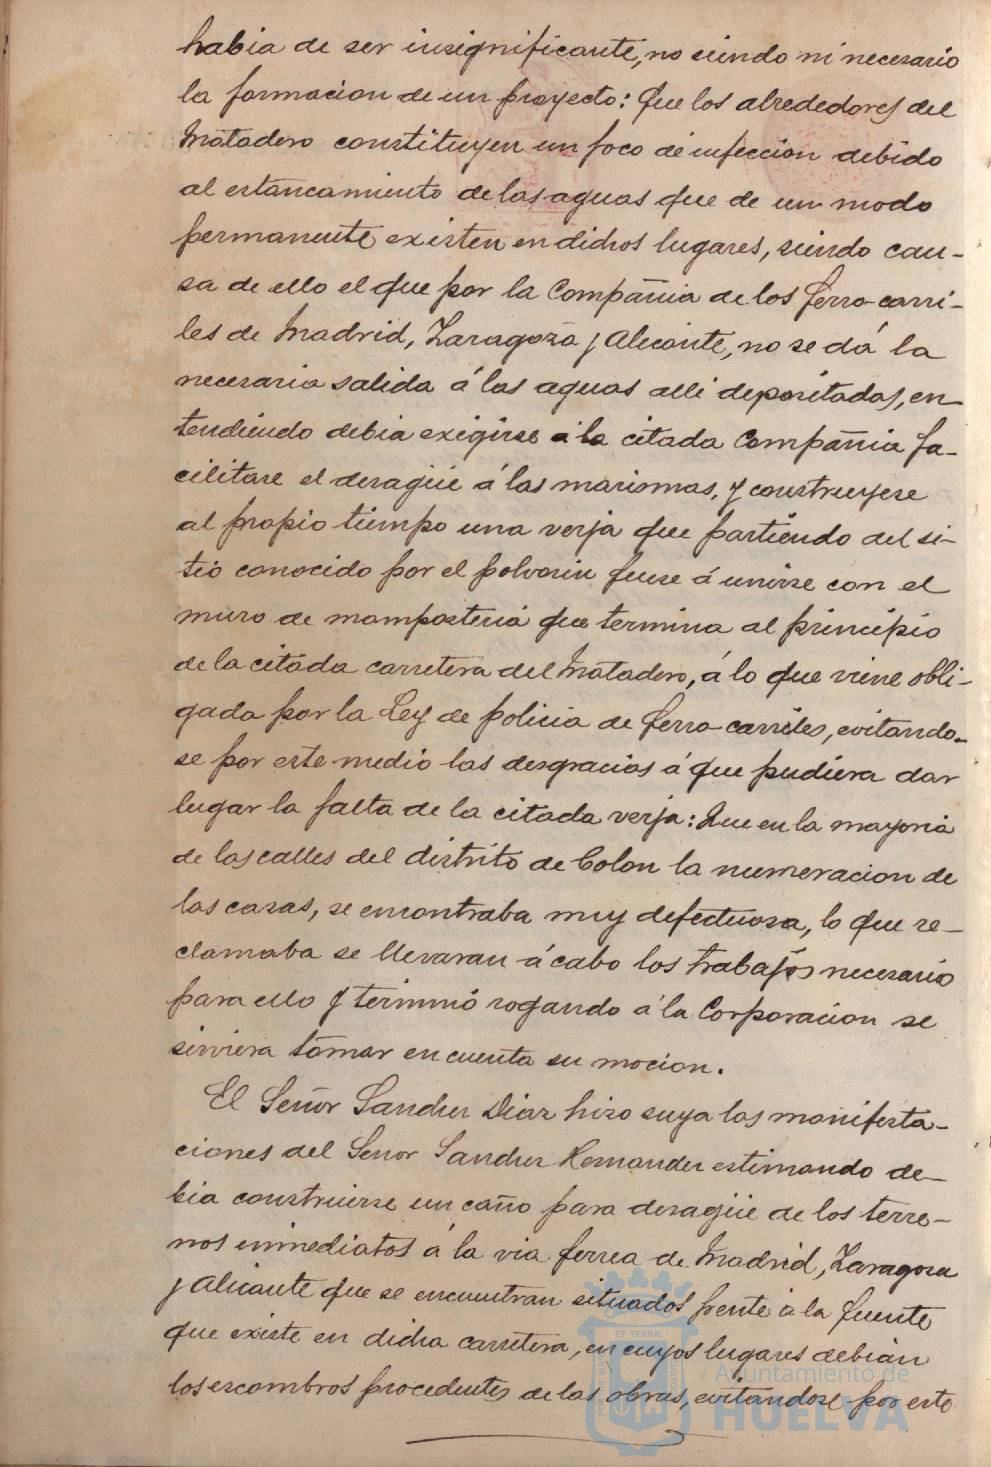 habia de ser insignificante, no siendo ni necesario
la formacion de un proyecto: Que los alrededores del
Matadero constituyen un foco de infeccion debido
al estancamiento de las aguas que de un modo
permanente existen en dichos lugares, siendo cau-
sa de ello el que por la Compañia de los ferro-carri-
les de Madrid, Zaragoza y Alicante, no se dá la
necesaria salida á las aguas alli depositadas, en-
tendiendo debia exigirse á la citada Compañia fa-
cilitase el desagüe á las marismas, y construyese
al propio tiempo una verja que partiendo del si-
tio conocido por el polvorin fuese á unirse con el
muro de mamposteria que termina al principio
de la citada carretera del Matadero, á lo que viene obli-
gada por la Ley de policia de ferro-carriles, evitando-
se por este medio las desgracias á que pudiera dar
lugar la falta de la citada verja: Que en la mayoria
de las calles del distrito de Colon la numeracion de
las casas, se encontraba muy defectuosa, lo que re-
clamaba se llevaran á cabo los trabajos necesario
para ello y terminó rogando á la Corporacion se
sirviera tomar en cuenta su mocion.
El Señor Sanchez Diaz hizo suya las manifesta-
ciones del Señor Sanchez Hernandez estimando de-
bia construirse un caño para desagüe de los terre-
nos inmediatos á la via ferrea de Madrid, Zaragoza
y Alicante que se encuentran situados frente á la fuente
que existe en dicha carretera, en cuyos lugares debian
los escombros procedentes de las obras, evitandose por este
ET TERRÆ
Ayuntamiento de
HUELVA